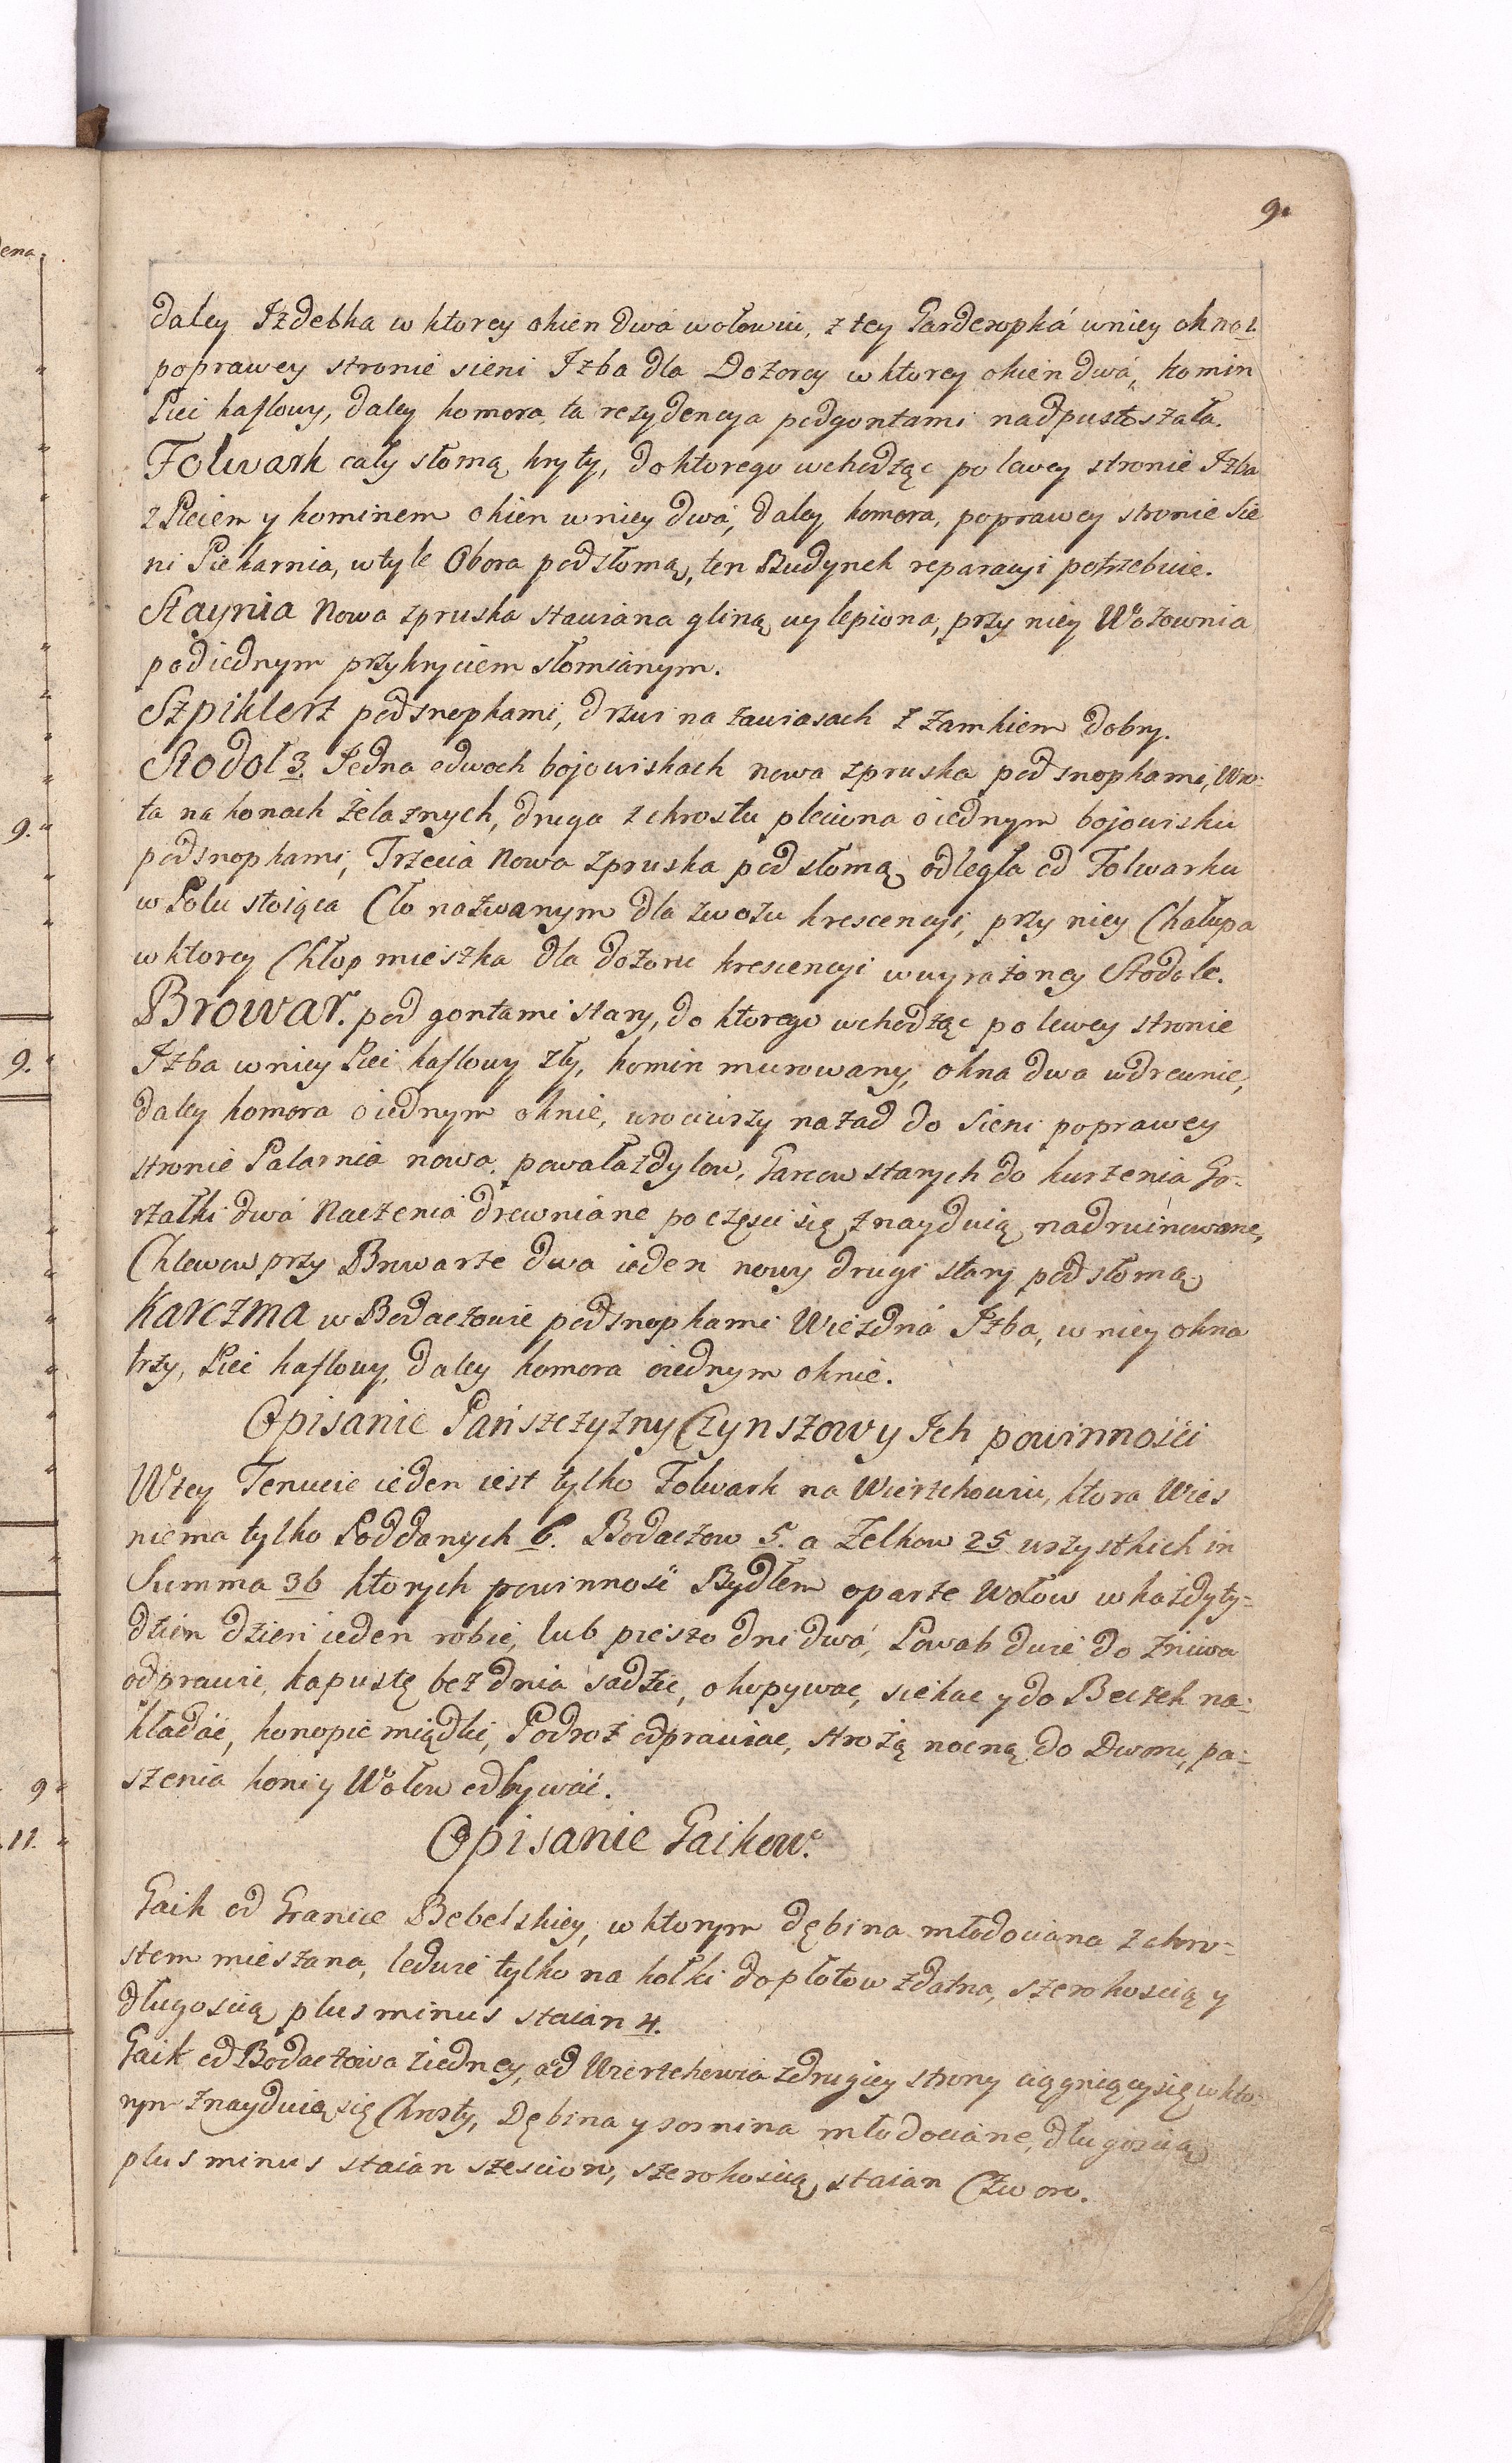 9.
daley Izdebka w ktorey okien dwá wołowiu, z tey Garderopká wniey okno 1.
poprawey stronie sieni Izba dla Dozorcy w ktorey okien dwá, komin
Piec kaflowy, daley komora, ta rezydencya pod gontami nadpustoszała.
Folwark cały słomą kryty, do ktorego wchodząc po lewey stronie Izba
z Piecem y kominem okien wniey dwá, daley komora, poprawey stronie Sie
ni Piekarnia, wtyle Obora pod słomą, ten Budynek reparacyi potrzebuie.
Staynia Nowa zpruska stawiana gliną wylepiona, przy niey Wozownia
pod iednym przykryciem słomianym.
Szpiklerz pod snopkami, drzwi na zawiasach z zamkiem dobry.
Stodoł 3. Jedna o dwoch bojowiskach nowa zpruska pod snopkami, Wro-
ta na konach żelaznych, druga z chrostu pleciona o iednym bojowisku
pod snopkami, Trzecia Nowa zpruska pod słomą odległa od Folwarku
w Polu stoiąca Cło nazwanym dla zwozu krescencyi, przy niey Chałupa
w ktorey Chłop mieszka dla dozoru krescencyi w wyrażoney Stodole.
Browar. pod gontami stary, do ktorego wchodząc po lewey stronie
Izba wniey Piec kaflowy zły, komin murowany, okna dwa w drewnie,
daley komora o iednym oknie, wrociwszy nazad do Sieni poprawey
stronie Palarnia nowa, powała z dylow, Garcow starych do kurzenia Go-
rzałki dwá Naczenia drewniane po częsci się znayduią nadruinowane,
Chlewow przy Browarze dwa ieden nowy drugi stary pod słomą.
Karczma w Bodaczowie pod snopkami Wiezdná Izba, w niey okna
trzy, Piec kaflowy, daley komora o iednym oknie.
Opisanie Pańszczyzny Czynszow y Ich powinnośći
W tey Tenucie ieden iest tylko Folwark na Wierzchowiu, ktora Wies
niema tylko Poddanych 6. Bodaczow 5. a Zelkow 25 wszystkich in
Summa 36 ktorych powinność Bydłem o parze Wołow w każdy ty-
dzien dzień ieden robić, lub pieszo dni dwá, Powab dwie do żniwa
odprawić, kapustę bez dnia sadzić, okopywac, siekac y do Beczek na-
kładáć, konopie miądlić, Podroż odprawiac, strożą nocną do Dworu, pa-
szenia koni y Wołow odbywáć.
Opisanie Gaikow.
Gaik od Granice Bebelskiey, w ktorym dębina młodociana z chro-
stem mieszana, ledwie tylko na kołki do płotow zdatna, szerokoscią y
długoscią plus minus staian 4.
Gaik od Bodaczowa ziedney, od Wierzchowia z drugiey strony ciągniący się w kto-
rym znayduią się Chrosty, Dębina y sosnina młodociane, długoscią
plus minus staian szesciow, szerokoscią staian Czworo.
ena.
9. "
9. "
9 "
11. "